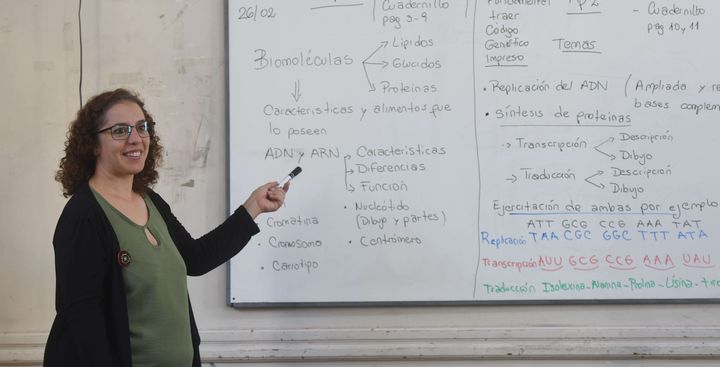 26/02
Cuadernillo
pag 3-9
Biomoléculas
Lípidos
Glúcidos
Proteínas
Características y alimentos que
lo poseen
ADN y ARN
Características
Diferencias
Función
• Nucleótido
(Dibujo y partes)
• Centrómero
Cromatina
• Cromosoma
• Cariotipo
traer
Código
Genético
Impreso
TP2
Temas
- Cuadernillo
pag 10 y 11
• Replicación del ADN (Ampliada y
bases
• Síntesis de proteínas
→ Transcripción
Descripción
Dibujo
→ Traducción
Descripción
Dibujo
Ejercitación de ambas por ejemplo
ATT GCG CCG AAA TAT
Replicación TAA CGC GGC TTT ATA
Transcripción AUU GCG CCG AAA UAU
Traducción Isoleucina - Alanina - Prolina - Lisina -